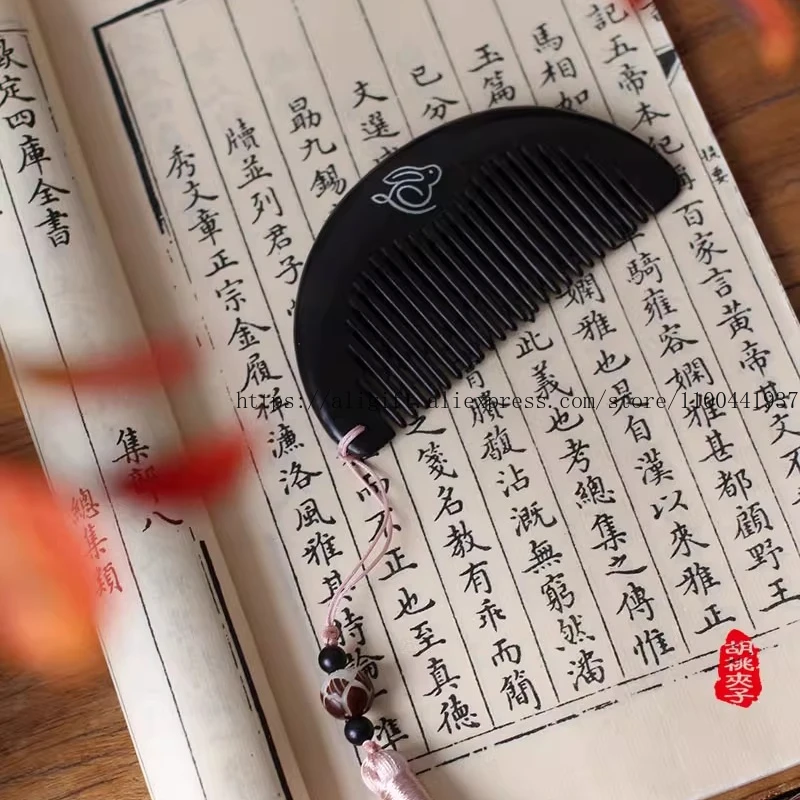 提要
記五帝本紀稱百家言黃帝其文不
馬相如 車騎雍容嫻雅甚都顧野王
玉篇 嫻雅也是自漢以來雅正
已分 此義也考總集之傳惟
文選 馥沾溉無窮然潘
勗九錫 之箋名教有乖而簡
牘並列君子 而不正也至真德
秀文章正宗金履祥濂洛風雅其持論一準
欽定四庫全書
集部八
總集類
https://aligift.aliexpress.com/store/1100441937
胡桃夾子